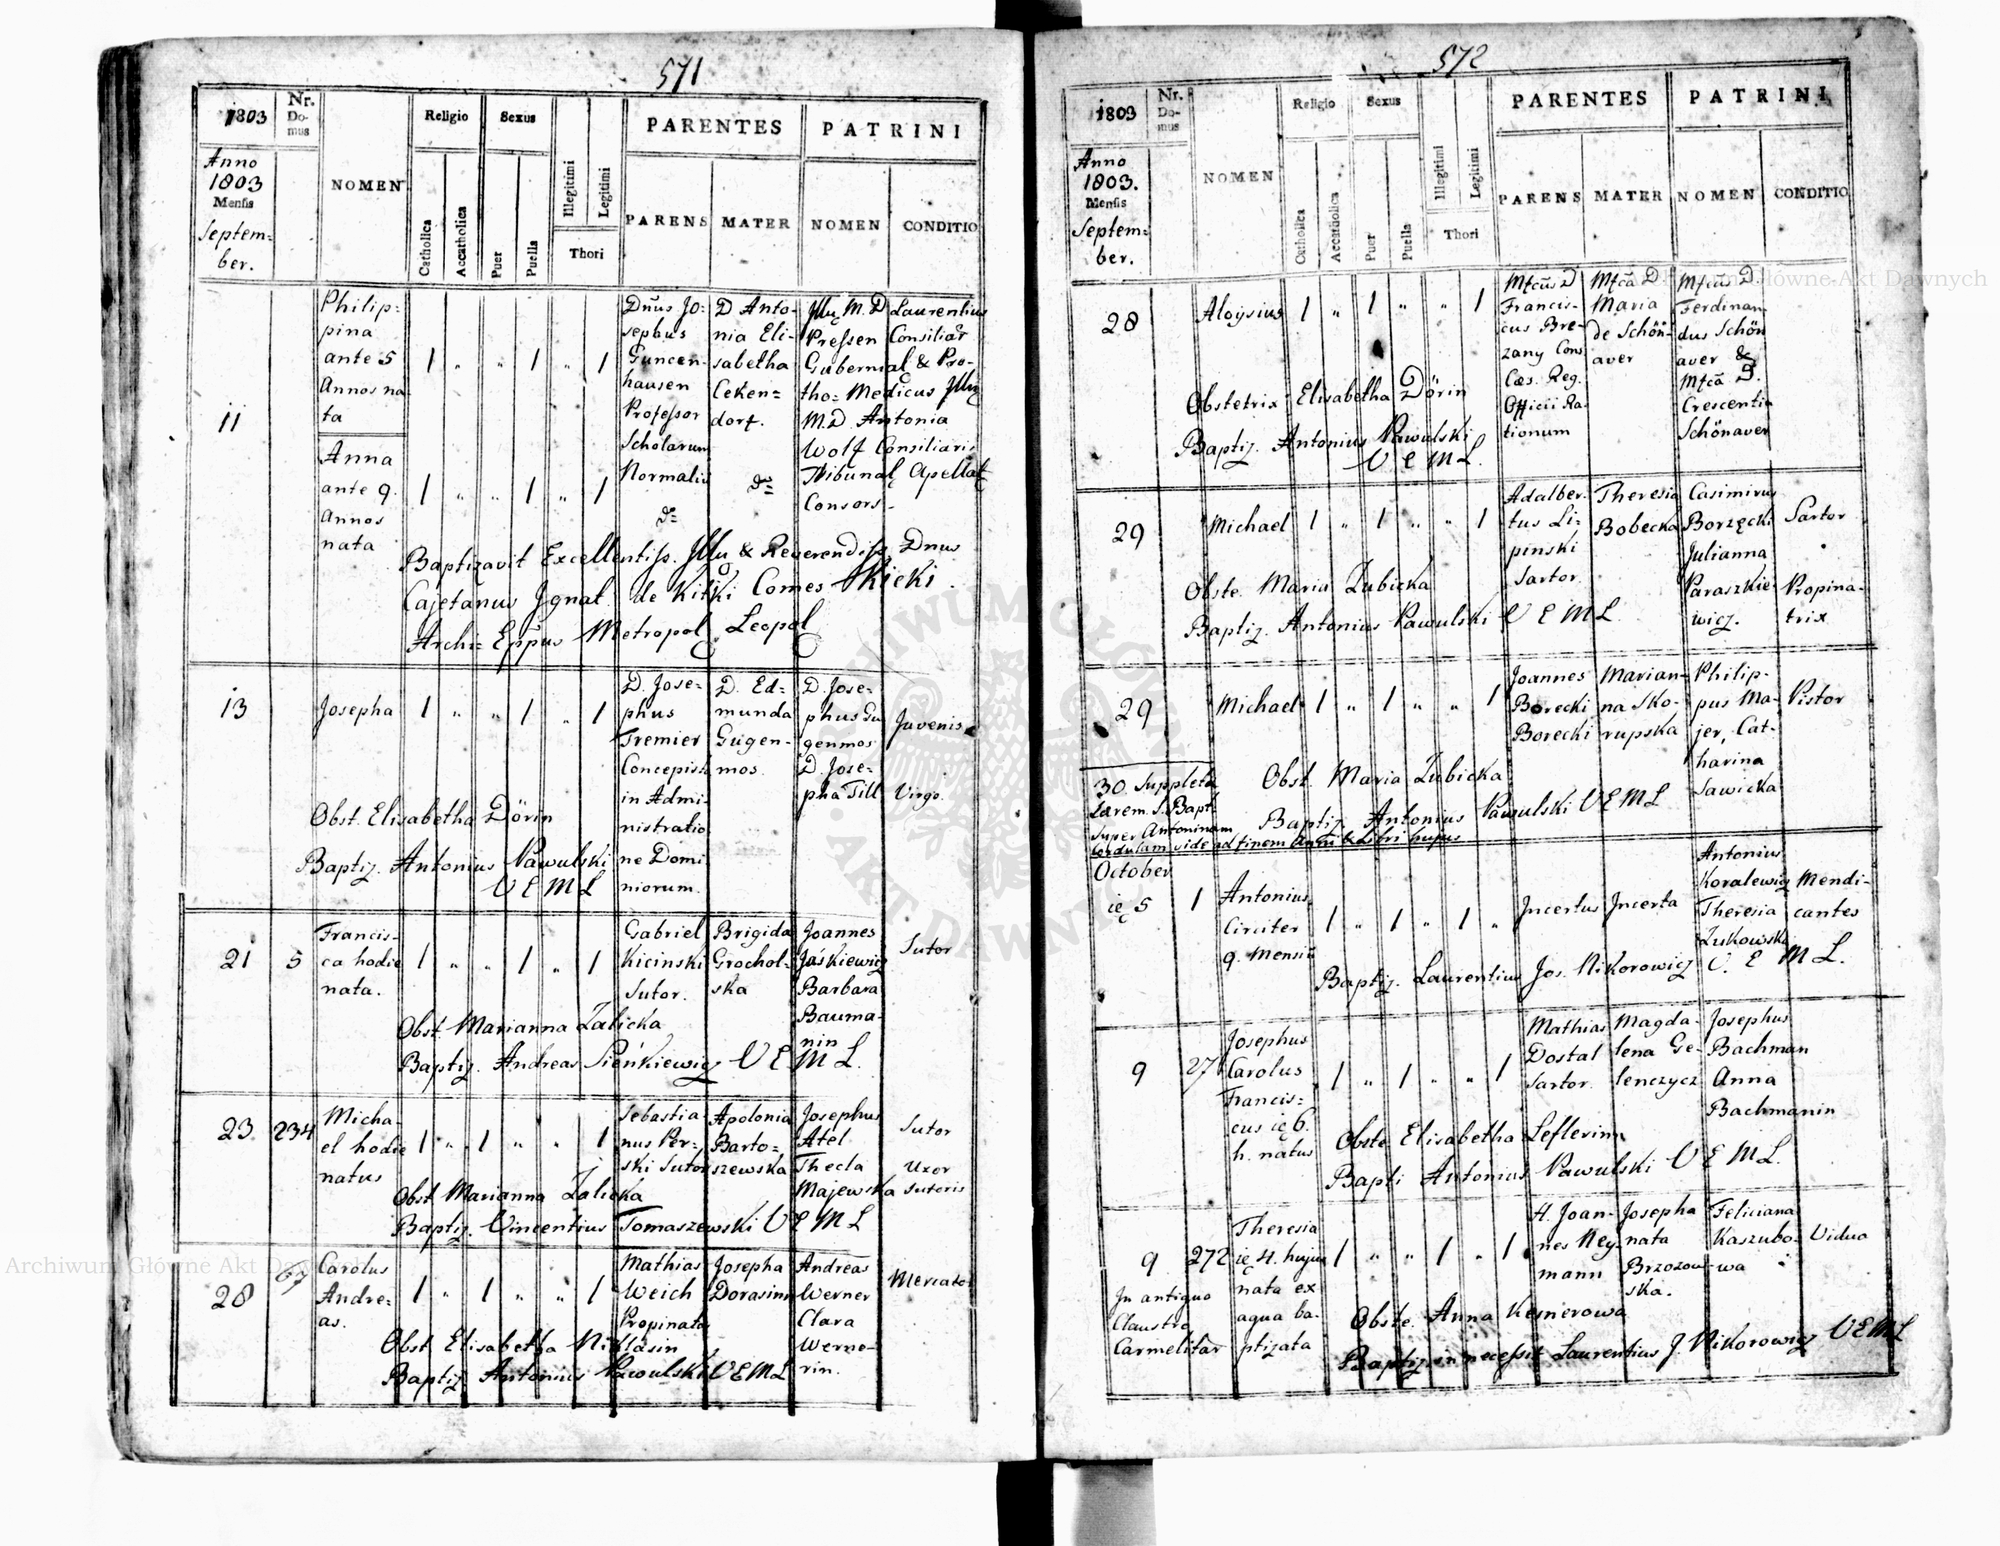 571
1803
Nr. Do-mus
NOMEN
Religio
Sexus
Catholica
Accatholica
Puer
Puella
Illegitimi
Legitimi
Thori
PARENTES
PATRINI
PARENS
MATER
NOMEN
CONDITIO
Anno
1803
Mensis
Septem=
ber.
11
Philip=
pina
ante 5
Annos na
ta
1 " " 1 1
Anna
ante 9.
Annos
nata
1 " " 1 " 1
Dnus Jo=
sephus
Guncen-
hausen
Professor
Scholarum
Normaliu
D Anto-
nia Eli-
sabetha
Ceken=
dorf.
M. D Laurentius
Pressen Consiliar
Gubernial & Pro-
tho= Medicus
M. D. Antonia
Wolf Consiliaris
Tribunal Apellat
Consors.
Baptizavit Excellentiss. & Reverendiss. Dnus
Cajetanus Ignat. de Kitki Comes Kicki.
Archi= Eppus Metropol. Leopol
13
Josepha
1 " " 1 " 1
D. Jose=
phus
Tremier
Concepist
in Admi-
nistratio
ne Domi-
niorum.
D. Ed=
munda
Gugen-
mos.
D. Jose=
phus Gu
genmos
D. Jose=
pha Till
Juvenis
Virgo.
Obst. Elisabetha Dörin
Baptiz. Antonius Pawulski
V E M L
21
5
Francis-
ca hodie
nata.
1 " " 1 " 1
Gabriel
Kicinski
Sutor.
Brigida
Grochol-
ska
Joannes
Jaśkiewicz
Barbara
Bauma-
nin
Sutor
Obst. Marianna Zalicka
Baptiz. Andreas Sieńkiewicz V E M L.
23
234
Micha-
el hodie
natus
1 " 1 " " 1
Sebastia-
nus Per-
ski Sutor
Apolonia
Barto=
szewska
Josephus
Atel
Thecla
Majewska
Sutor
Uxor
Sutoris
Obst Marianna Zalicka
Baptiz. Vincentius Tomaszewski V E M L
28
67
Carolus
Andre=
as.
1 " 1 " " 1
Mathias
Weich
Propinator
Josepha
Dorasinn
Andreas
Werner
Clara
Werne-
rin.
Mercator
Obst Elisabetha Niklasin
Baptiz. Antonius Pawulski V E M L
572
1803
Nr. Do-mus
NOMEN
Religio
Sexus
Catholica
Accatholica
Puer
Puella
Illegitimi
Legitimi
Thori
PARENTES
PATRINI
PARENS
MATER
NOMEN
CONDITIO
Anno
1803.
Mensis
Septem=
ber.
28
Aloysius
1 " 1 " " 1
Mfcus D
Francis-
cus Bre-
zany Cons
Cæs. Reg.
Officii Ra-
tionum
Mfca D.
Maria
de Schön-
aver
Mfcus D
Ferdinan-
dus Schön
aver &
Mfca D.
Crescentia
Schönaver
Obstetrix Elisabetha Dörin
Baptiz. Antonius Pawulski
V E M L.
29
Michael
1 " 1 " " 1
Adalber-
tus Li-
pinski
Sartor.
Theresia
Bobecka
Casimirus
Borzęcki
Julianna
Paraszkie
wicz.
Sartor
Propina-
trix
Obste. Maria Zubicka
Baptiz. Antonius Pawulski V E M L
29
Michael
1 " 1 " " 1
Joannes
Borecki
Borecki
Marian-
na Sko-
rupska
Philip-
pus Ma-
jer, Cat-
harina
Sawicka
Pistor
Obst. Maria Zubicka
Baptiz. Antonius Pawulski V E M L
30. Suppleta
Bapt.
super Antoninam
vide ad finem Anni & Libri hujus
October
5
1
Antonius
Circiter
9. Mensiu
1 " 1 " 1 "
Incertus
Incerta
Antonius
Koralewicz
Theresia
Zukowska
Mendi-
cantes
Baptiz. Laurentius Jos. Nikorowicz V. E M L.
9
27
Josephus
Carolus
Francis=
cus ię 6.
h. natus
1 " 1 " " 1
Mathias
Dostal
Sartor.
Magda-
lena Ge-
lenczycz
Josephus
Bachman
Anna
Bachmanin
Obste Elisabetha Leflerinn
Bapti Antonius Pawulski V E M L.
9
272
In antiquo
Claustro
Carmelitar
Theresia
ię 4. hujus
nata ex
aqua ba-
ptizata
1 " " 1 " 1
H. Joan-
nes Ney-
mann
Josepha
nata
Brzozow-
ska.
Feliciana
Kaszubo-
wa
Vidua
Obste. Anna Kesnerowa
Baptiz. in necessit Laurentius J. Nikorowicz V E M L
Archiwum Główne Akt Dawnych
ARCHIWUM GŁÓWNE AKT DAWNYCH
Archiwum Główne Akt Dawnych